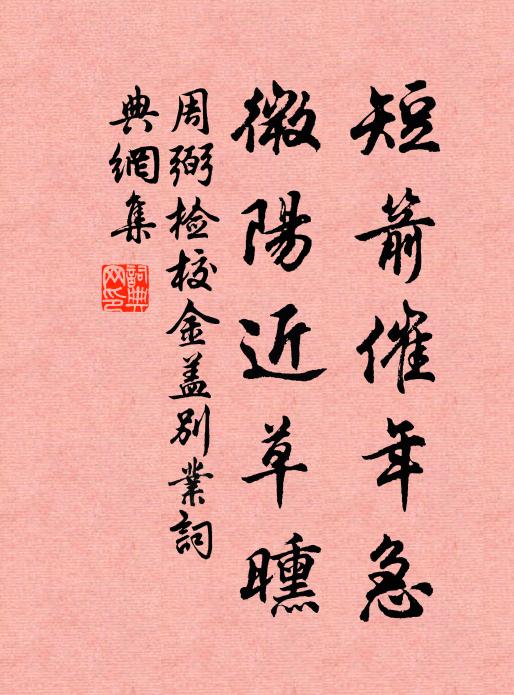 短箭催年急
微陽近草曛
周弼檢校金蓋別業詞
典網集
詞典網印